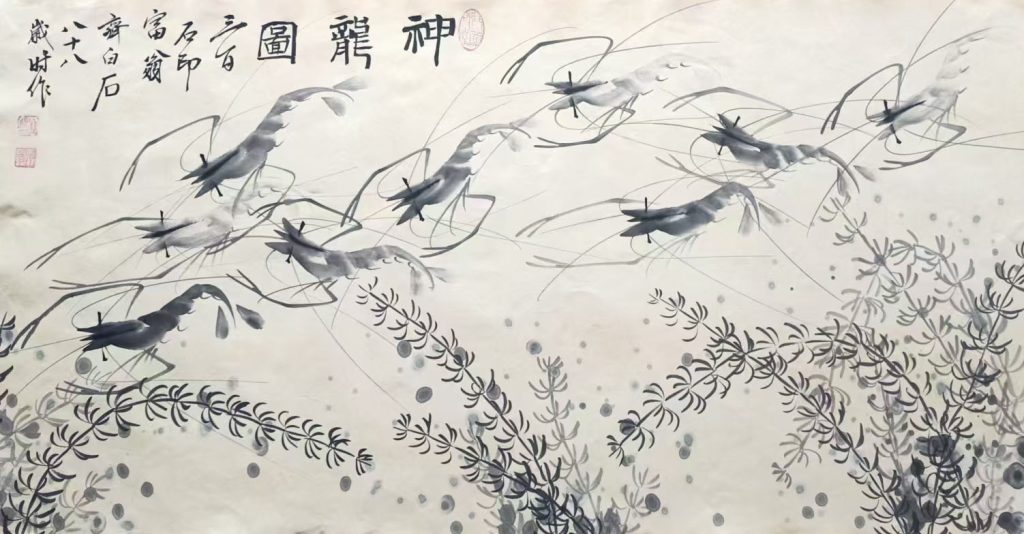 神龍圖
三百
石印
富翁
齊白石
八十八
歲时作